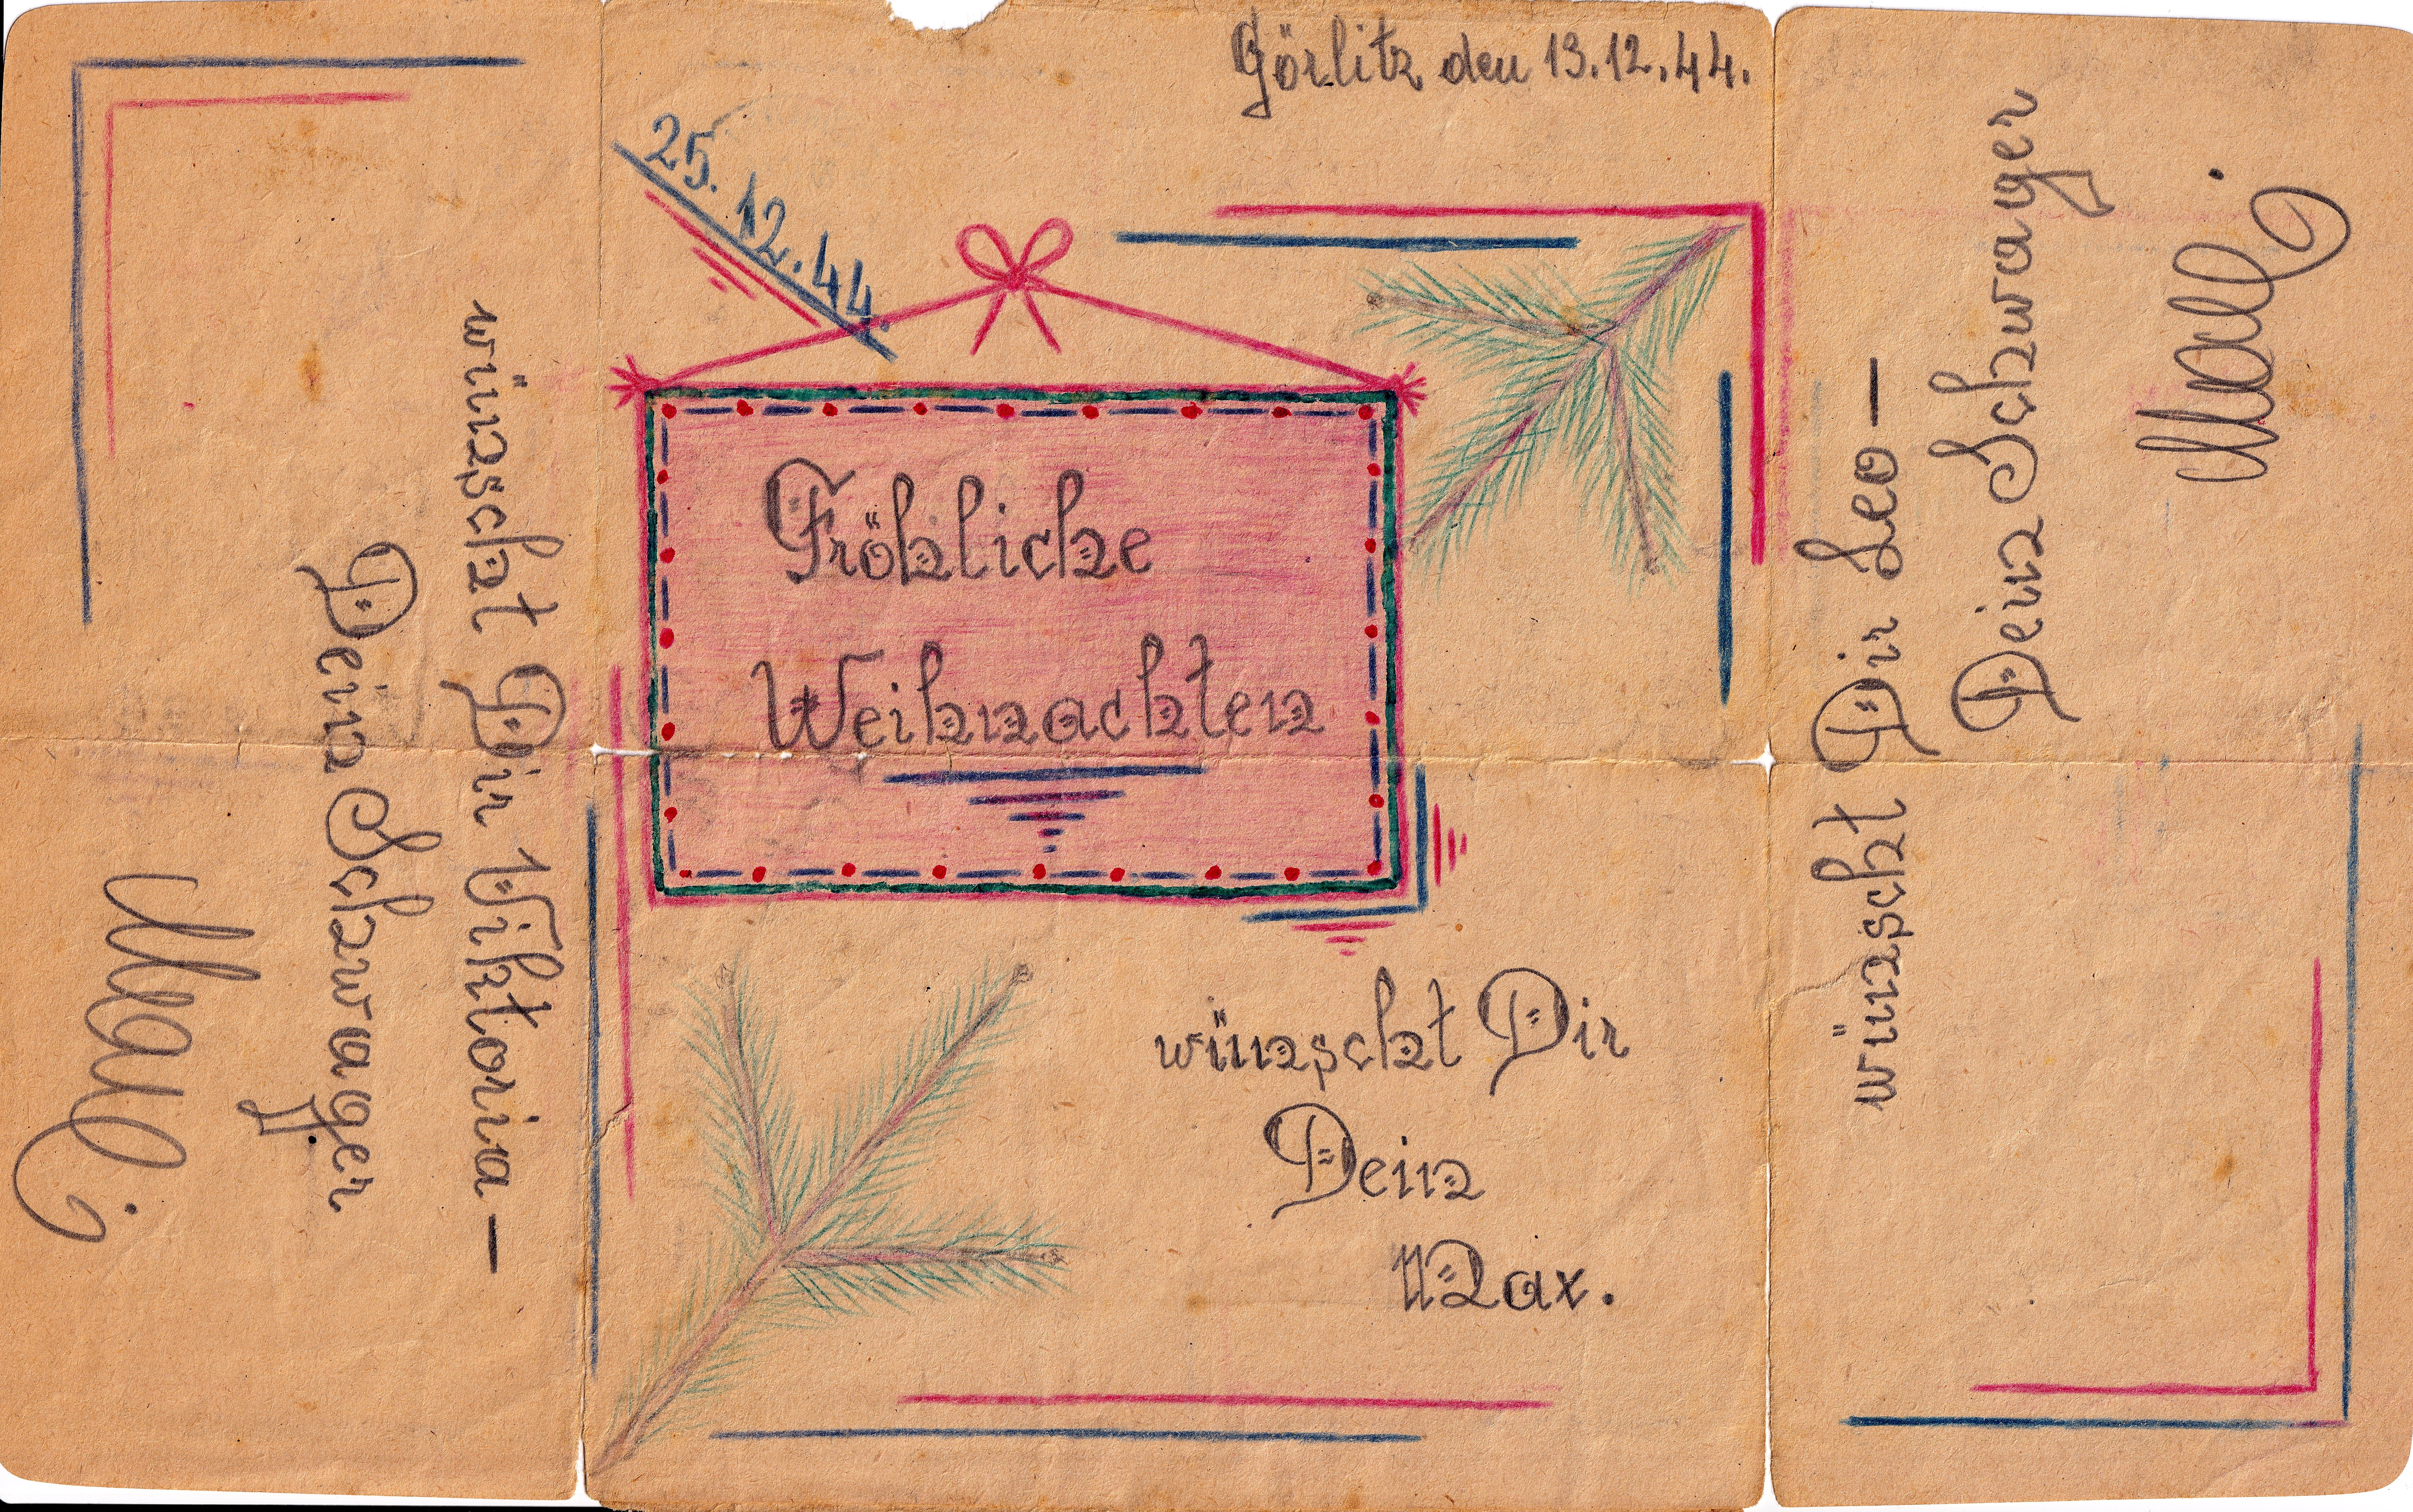 Görlitz den 13.12.44.
25.12.44.
Fröhliche
Weihnachten
wünscht Dir
Dein
Max.
wünscht Dir Viktoria –
Dein Schwager
Maxl
wünscht Dir Leo –
Dein Schwager
Maxl